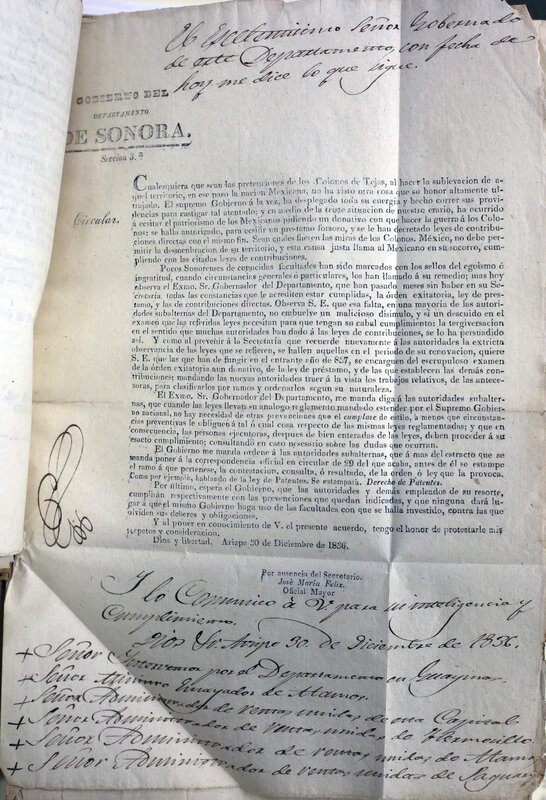 El Excelentisimo Señor Gobernado
de este Departamento, con fecha de
hoy me dice lo que sigue.
GOBIERNO DEL
DEPARTAMENTO
DE SONORA.
Seccion 3.ª
Circular.
Cualesquiera que sean las pretenciones de los Colonos de Tejas, al hacer la sublevacion de a-
quel territorio, en ese paso la nacion Mexicana, no ha visto otra cosa que su honor altamente ul-
trajado. El supremo Gobierno á la vez, ha desplegado toda su energia y hecho correr sus pro-
videncias para castigar tal atentado; y en medio de la triste situacion de nuestro erario, ha ocurrido
á ecsitar el patriotismo de los Mexicanos pidiendo un donativo con que hacer la guerra á los Colo-
nos: se halla autorizado, para ecsijir un prestamo forsoso, y se le han decretado leyes de contribu-
ciones directas con el mismo fin. Sean cuales fuesen las miras de los Colonos. México, no debe per-
mitir la desmenbracion de su territorio, y esta causa justa llama al Mexicano en su socorro, cum-
pliendo con las citadas leyes de contribuciones.
Pocos Sonorenses de conocidas facultades han sido marcados con los sellos del egoismo é
ingratitud, cuando circunstancias generales ó particulares, los han llamado á su remedio; mas hoy
observa el Exmo. Sr. Gobernador del Departamento, que han pasado meses sin haber en su Se-
cretaría todas las constancias que le acrediten estar cumplidas, la órden exitatoria, ley de pres-
tamo, y las de contribuciones directas. Observa S. E. que esa falta, en una mayoría de las autori-
dades subalternas del Departamento, no embuelve un malicioso disimulo, y si un descuido en el
examen que las referidas leyes necesitan para que tengan su cabal cumplimiento: la tergiversacion
en el sentido que muchas autoridades han dado á las leyes de contribuciones, se lo ha persuadido
así. Y como al prevenir á la Secretaría que recuerde nuevamente á las autoridades la extricta
observancia de las leyes que se refieren, se hallen aquellas en el periodo de su renovacion, quiere
S. E. que las que han de fungir en el entrante año de 837, se encarguen del escrupuloso examen
de la órden exitatoria aun donativo, de la ley de préstamo, y de las que establecen las demás con-
tribuciones; mandando las nuevas autoridades traer á la vista los trabajos relativos, de las antece-
soras, para clasificarlos por ramos y ordenarlos segun su naturaleza.
El Exmo. Sr. Gobernador del Departamento, me manda diga á las autoridades subalter-
nas, que cuando las leyes llevan su analogo reglamento mandado estender por el Supremo Gobier-
no nacional, no hay necesidad de otras prevenciones que el cumplase de estilo, á menos que circunstan-
cias preventivas le obliguen á tal ó cual cosa respecto de las mismas leyes reglamentadas; y que en
consecuencia, las personas ejecutoras, despues de bien enteradas de las leyes, deben proceder á su
esacto cumplimiento; consultando en caso nesesario sobre las dudas que ocurran.
El Gobierno me manda ordene á las autoridades subalternas, que á mas del estracto que se
manda poner á la correspondencia oficial en circular de 29 del que acaba, antes de él se estampe
el ramo á que pertenece, la contestacion, consulta, ó resultado, de la órden ó ley que la provoca.
Como por ejemplo, hablando de la ley de Patentes. Se estampará. Derecho de Patentes.
Por último, espera el Gobierno, que las autoridades y demás empleados de su resorte,
cumplirán respectivamente con las prevenciones que quedan indicadas, y que ninguna dará lu-
gar á que el mismo Gobierno haga uso de las facultades con que se halla investido, contra los que
olviden sus deberes y obligaciones.
Y al poner en conocimiento de V. el presente acuerdo, tengo el honor de protestarle mis
respetos y consideracion.
Dios y libertad. Arizpe 30 de Diciembre de 1836.
Por ausencia del Secretario.
José Maria Felix.
Oficial Mayor
Y lo Comunico á V. para su inteligencia y
Cumplimiento.
Dios &c. Arizpe 30. de Diciembre de 1836.
+ Señor por el Departamento en Guaymas
+ Señor Ministro Ensayador de Alamos.
+ Señor Administrador de rentas unidas de esta Capital
+ Señor Administrador de rentas unidas de Hermosillo
+ Señor Administrador de rentas unidas de Alamos
+ Señor Administrador de rentas unidas de